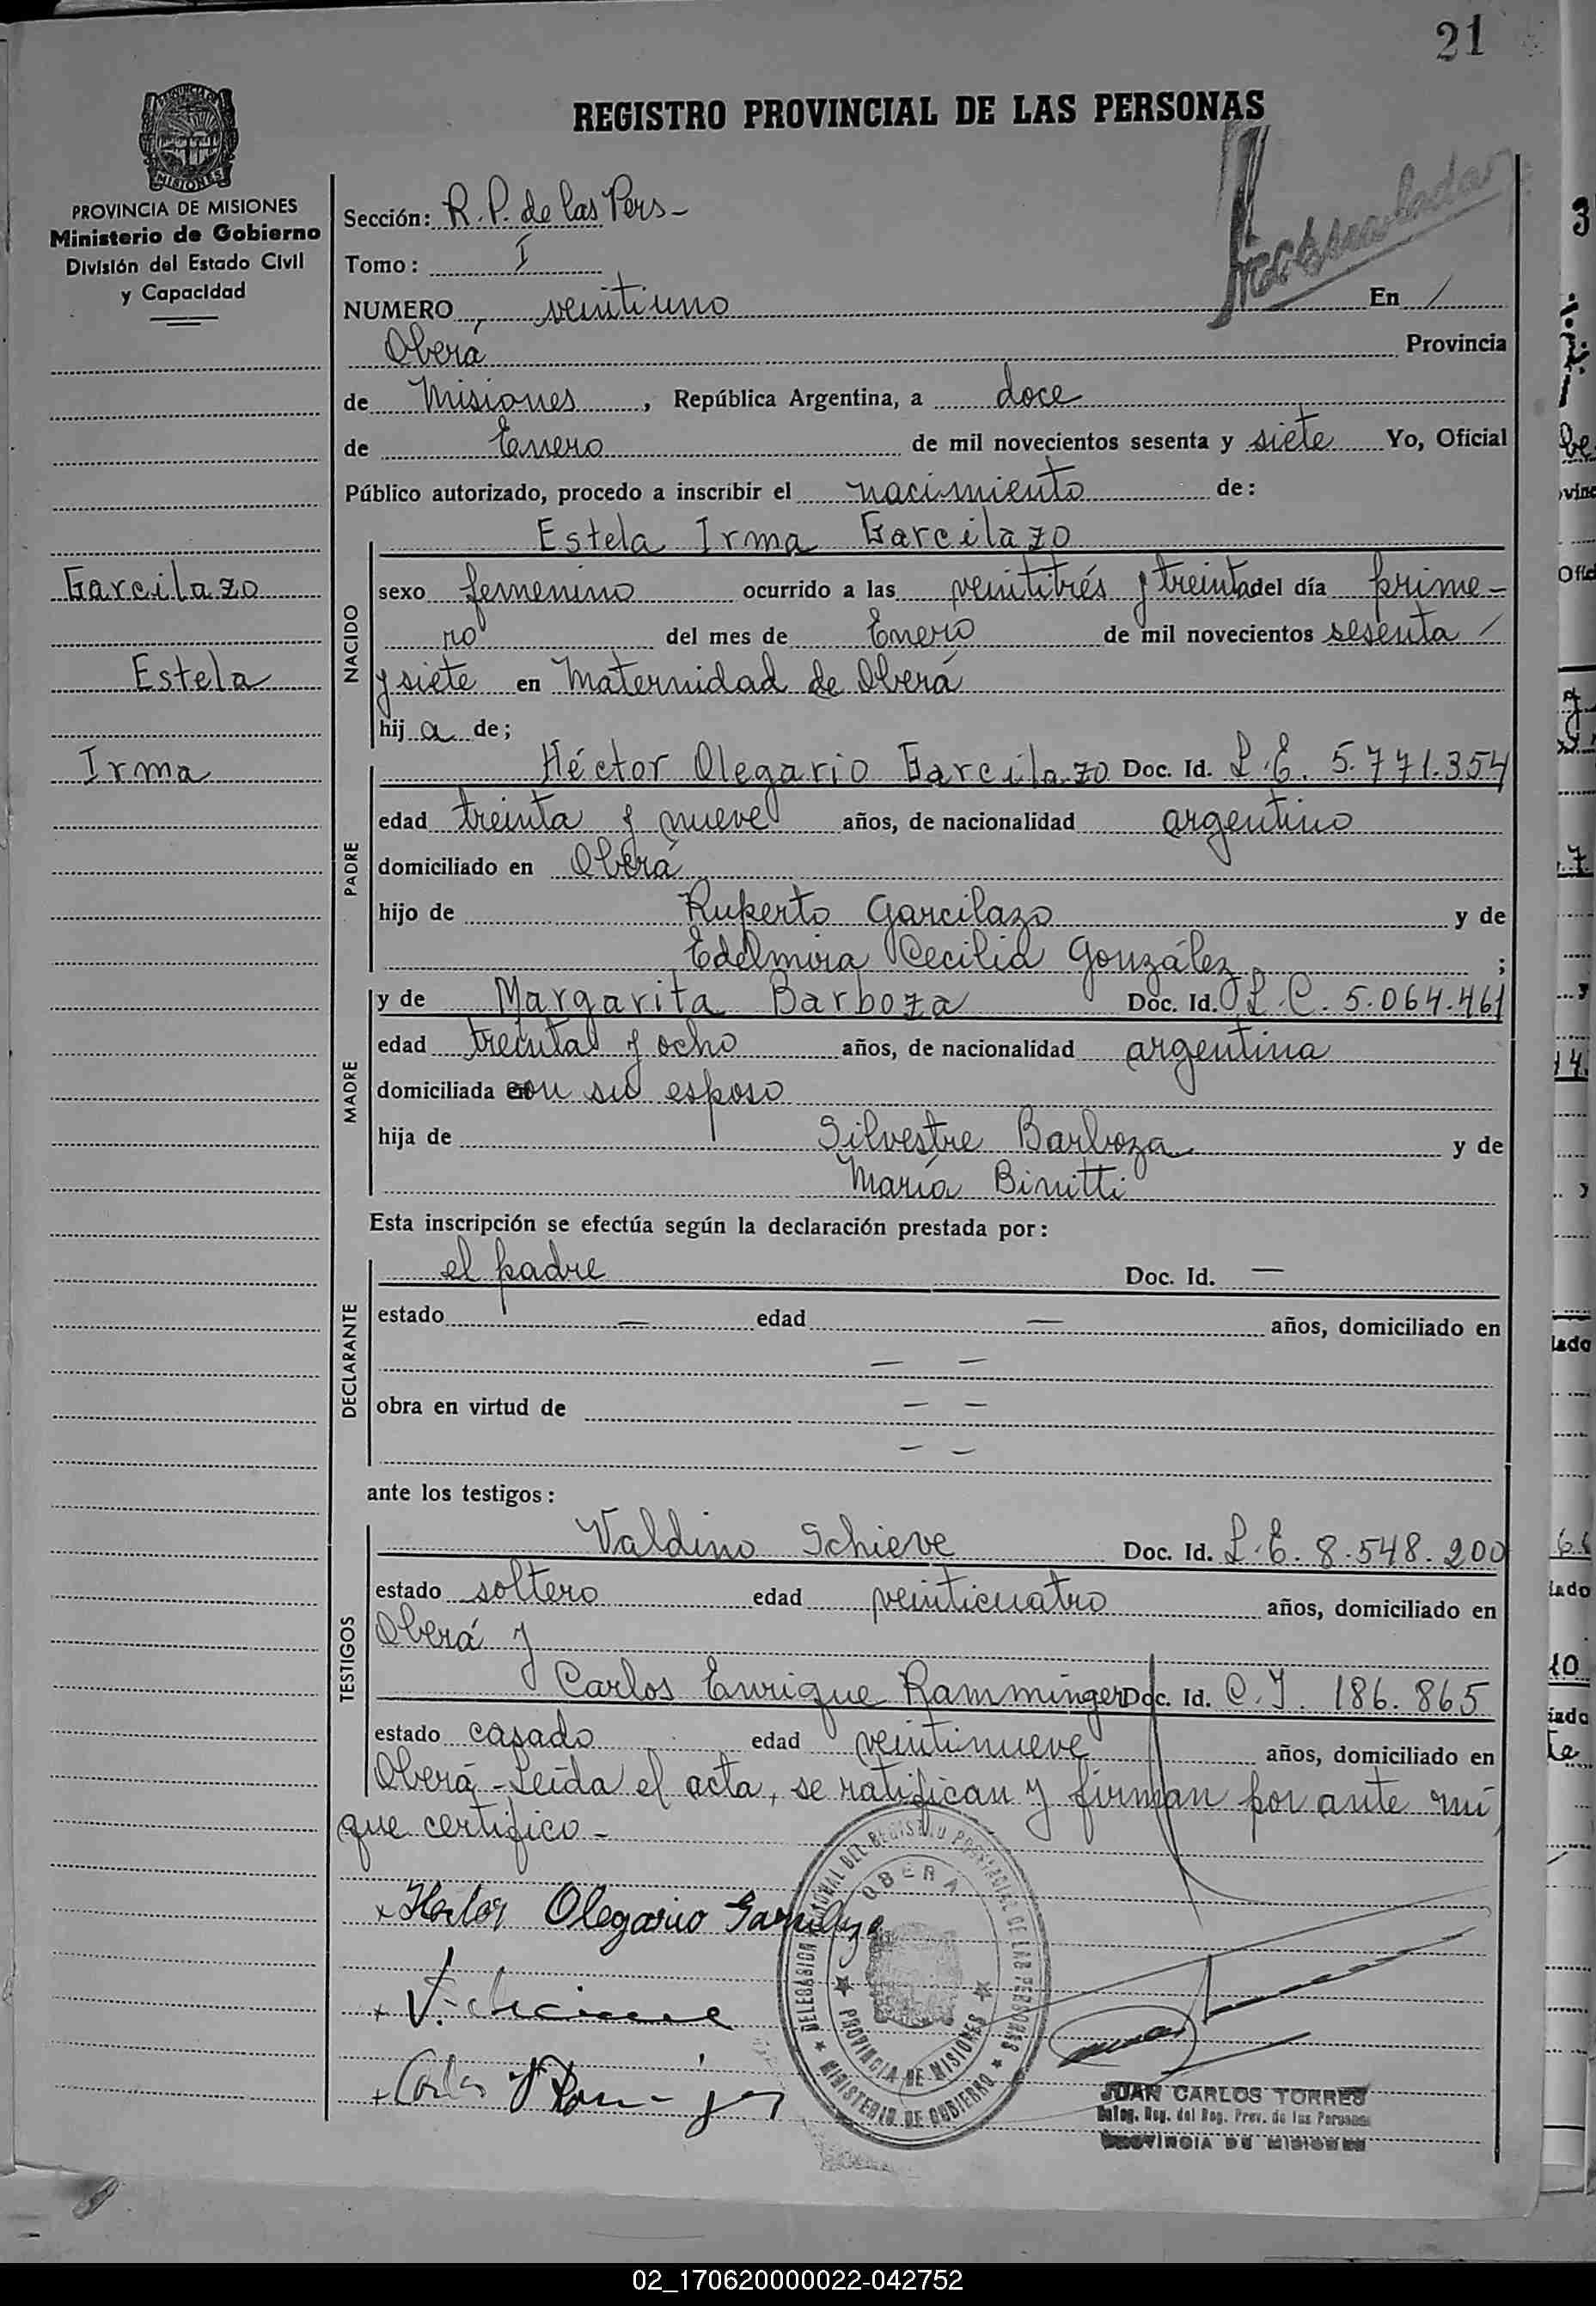 21
REGISTRO PROVINCIAL DE LAS PERSONAS
MISIONES
PROVINCIA DE MISIONES
Ministerio de Gobierno
División del Estado Civil
y Capacidad
Garcilazo
Estela
Irma
Sección: R. P. de las Pers-
Tomo: I
NUMERO veintiuno En /
Oberá Provincia
de Misiones, República Argentina, a doce
de Enero de mil novecientos sesenta y siete Yo, Oficial
Público autorizado, procedo a inscribir el nacimiento de:
Estela Irma Garcilazo
NACIDO
sexo femenino ocurrido a las veintitrés y treinta del día prime-
ro del mes de Enero de mil novecientos sesenta /
y siete en Maternidad de Oberá
hija de;
PADRE
Héctor Olegario Garcilazo Doc. Id. L.E. 5.771.354
edad treinta y nueve años, de nacionalidad argentino
domiciliado en Oberá
hijo de Ruperto Garcilazo y de
Edelmira Cecilia González ;
MADRE
y de Margarita Barboza Doc. Id. L.C. 5.064.461
edad treinta y ocho años, de nacionalidad argentina
domiciliada con su esposo
hija de Silvestre Barboza y de
María Binitti
Esta inscripción se efectúa según la declaración prestada por:
DECLARANTE
el padre Doc. Id. —
estado — edad — años, domiciliado en
— —
obra en virtud de — —
— —
ante los testigos:
TESTIGOS
Valdino Schieve Doc. Id. L.E. 8.548.200
estado soltero edad veinticuatro años, domiciliado en
Oberá y
Carlos Enrique Ramminger Doc. Id. C.I. 186.865
estado casado edad veintinueve años, domiciliado en
Oberá - Leída el acta, se ratifican y firman por ante mí,
que certifico -
Hector Olegario Garcilazo
DEL REGISTRO PROVINCIAL DE LAS PERSONAS
OBERA
PROVINCIA DE MISIONES
MINISTERIO DE GOBIERNO
JUAN CARLOS TORRES
Deleg. Reg. del Reg. Prov. de las Personas
PROVINCIA DE MISIONES
02_170620000022-042752